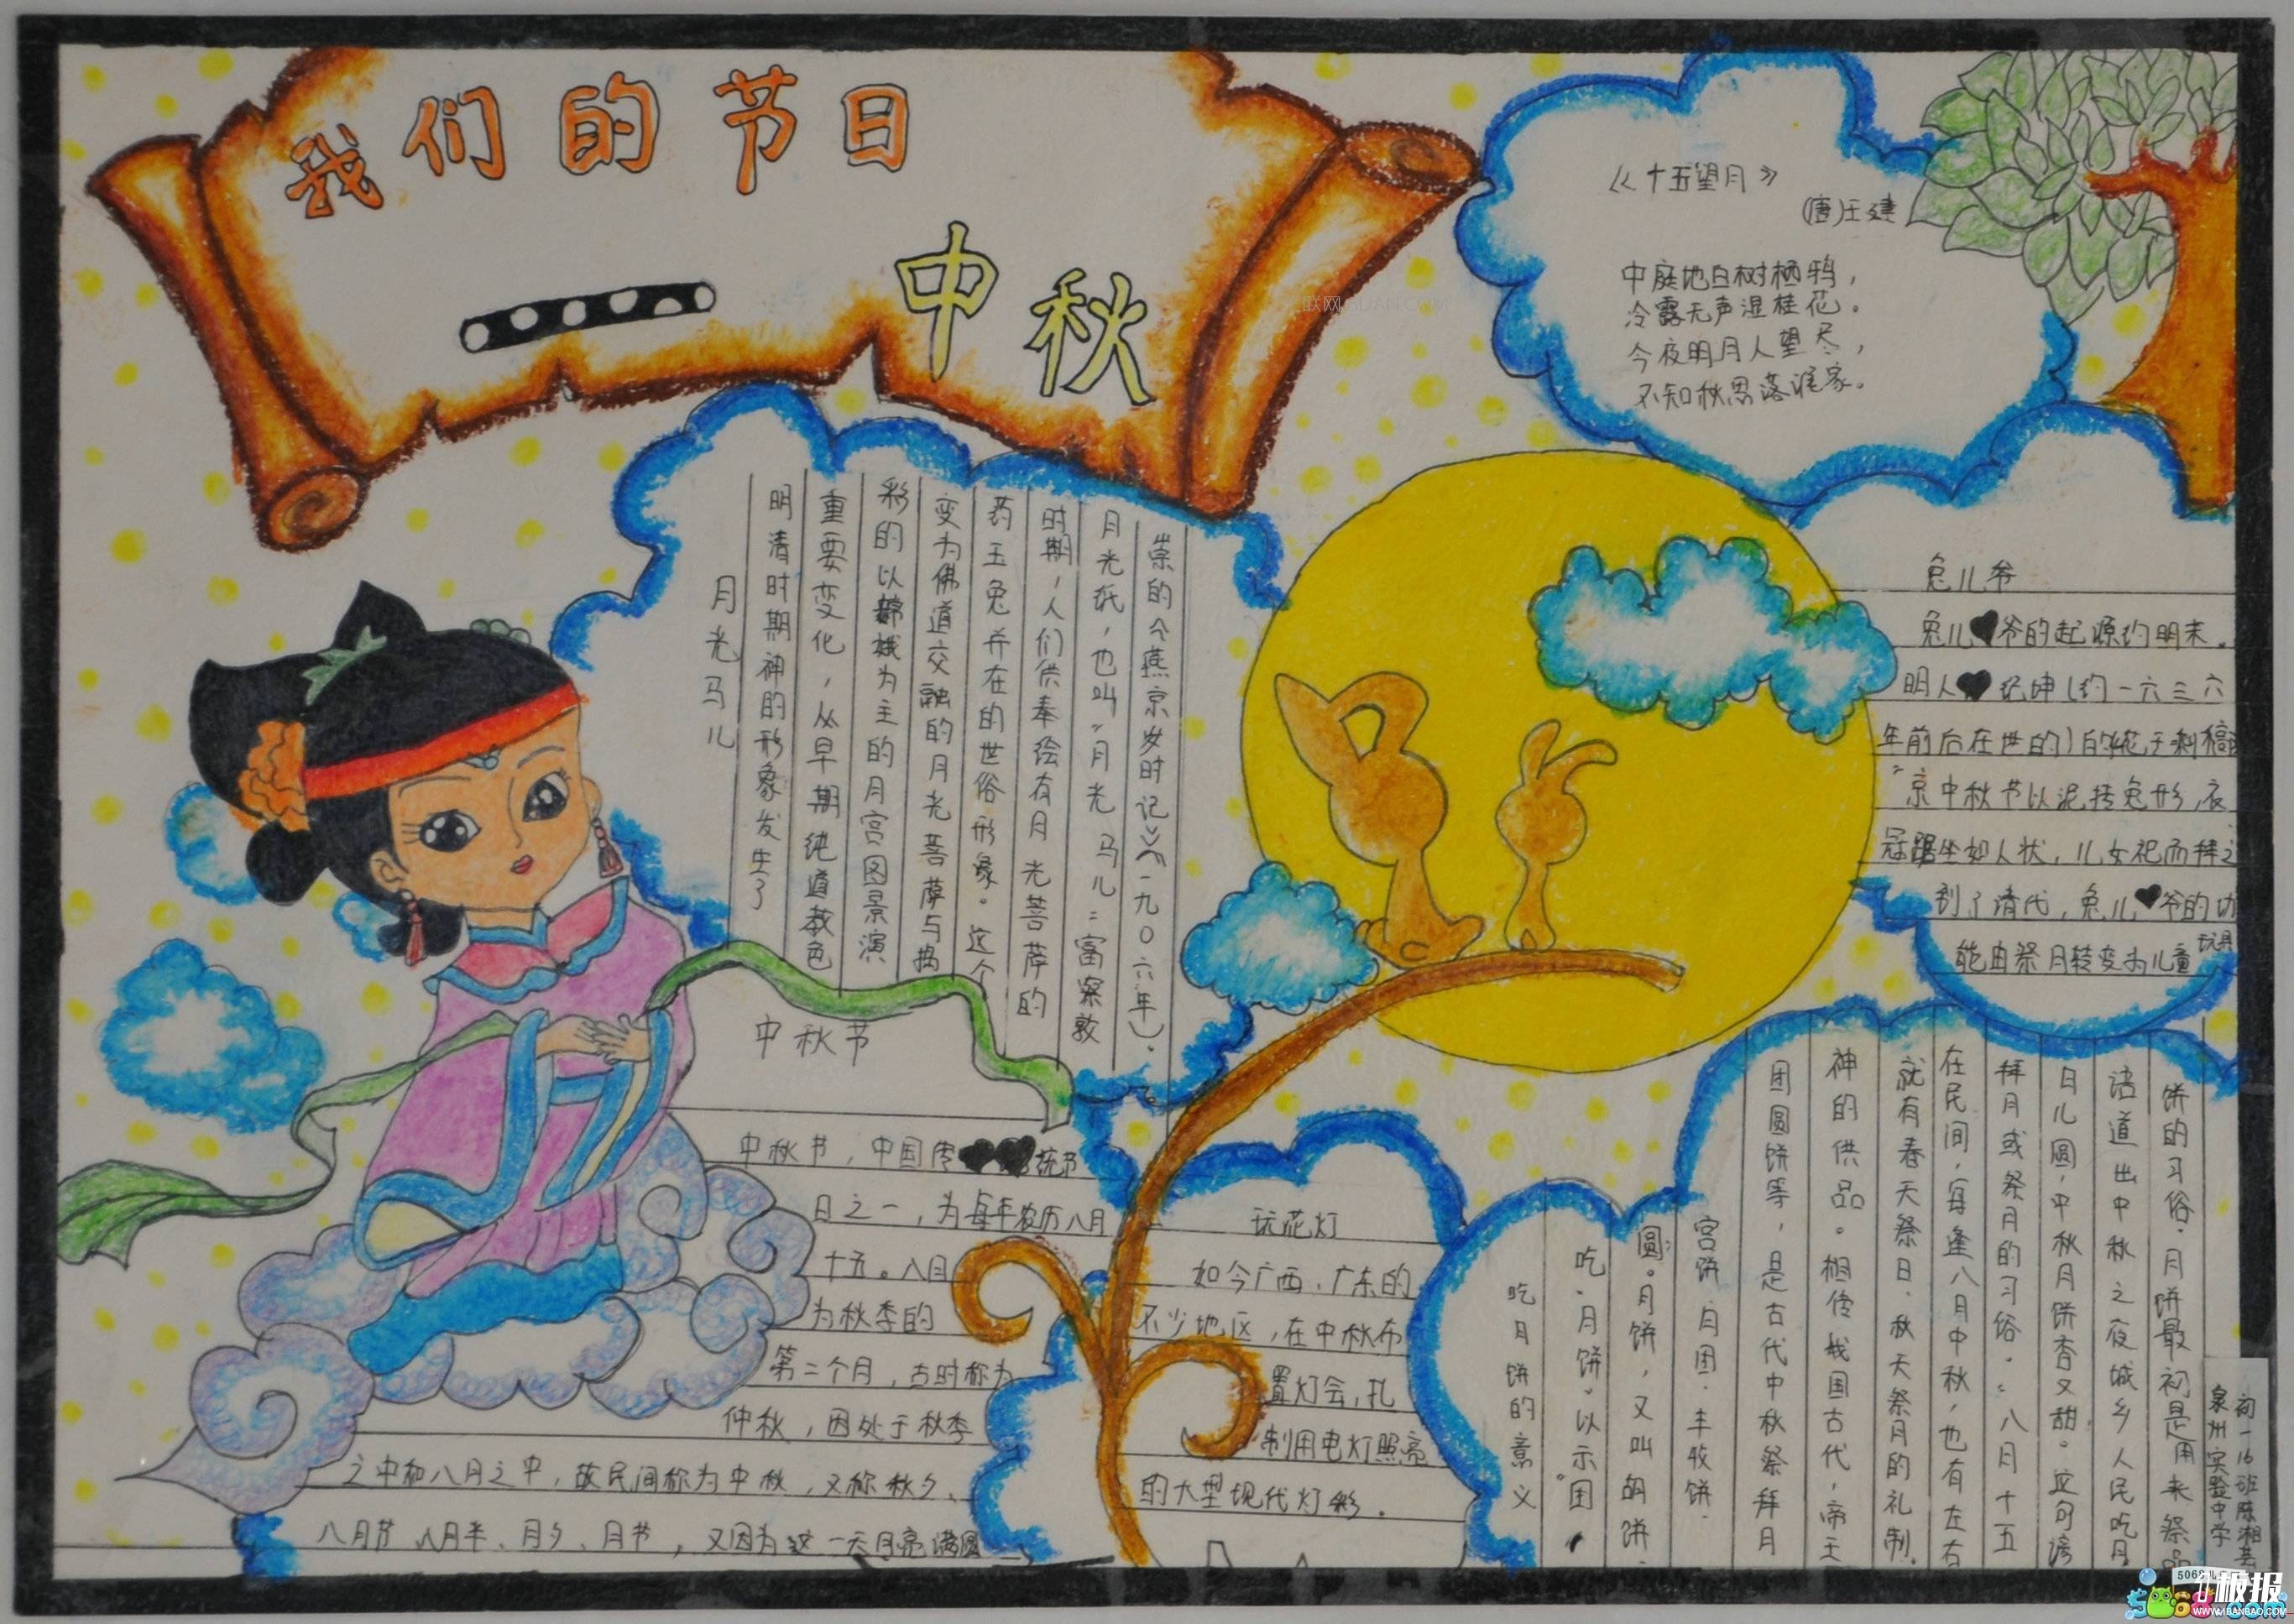 我们的节日
中秋
《十五望月》
(唐)王建
中庭地白树栖鸦，
冷露无声湿桂花。
今夜明月人望尽，
不知秋思落谁家。
月光马儿
明清时期神的形象发生了
重要变化，从早期纯道教色
彩的以嫦娥为主的月宫图景演
变为佛道交融的月光菩萨与捣
药玉兔并在的世俗形象。这个
时期，人们供奉绘有月光菩萨的
月光纸，也叫“月光马儿”富察敦
崇的《燕京岁时记》(一九0六年)。
兔儿爷
兔儿爷的起源约明末。
明人纪坤(约一六三六
年前后在世的)的花王剩稿
“京中秋节以泥抟兔形，衣
冠踞坐如人状，儿女祀而拜之
到了清代，兔儿爷的功
能由祭月转变为儿童玩具
中秋节
中秋节，中国传统节
日之一，为每年农历八月
十五。八月
为秋季的
第二个月，古时称为
仲秋，因处于秋季
之中和八月之中，故民间称为中秋，又称秋夕、
八月节、八月半、月夕、月节，又因为这一天月亮满圆
玩花灯
如今广西、广东的
不少地区，在中秋布
置灯会，扎
制用电灯照亮
的大型现代灯彩。
吃月饼的意义
吃月饼以示“团
圆”。月饼，又叫胡饼、
宫饼、月团、丰收饼、
团圆饼等，是古代中秋祭拜月
神的供品。相传我国古代，帝王
就有春天祭日、秋天祭月的礼制。
在民间，每逢八月中秋，也有左右
拜月或祭月的习俗。“八月十五
日儿圆，中秋月饼香又甜”。这句谚
语道出中秋之夜城乡人民吃月
饼的习俗。月饼最初是用来祭品
初一16班陈湘芸
泉州实验中学
板报
WWW.1BANBAO.COM